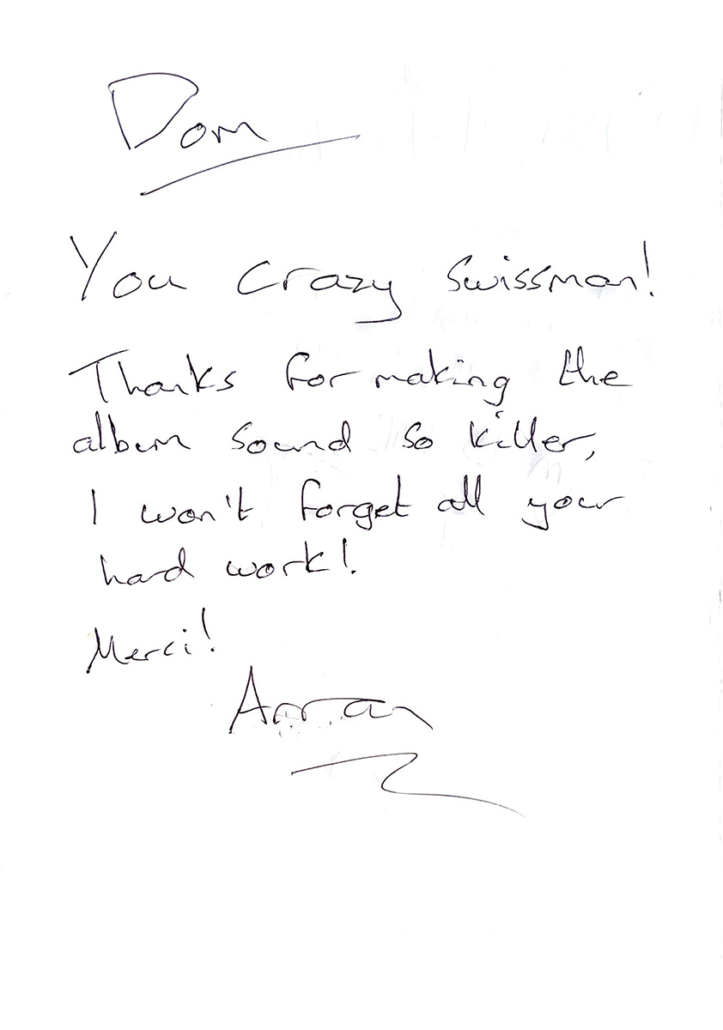 Dom
You crazy Swissman!
Thanks for making the
album sound so killer,
I won't forget all your
hard work!
Merci!
Arran